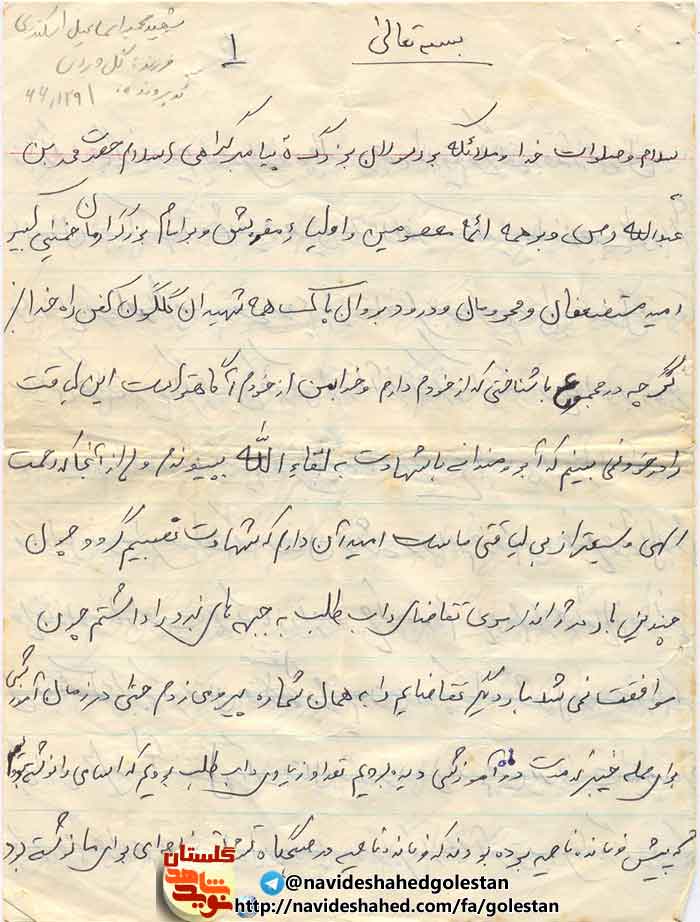 شهید محمد اسماعیل اسکندری
فرزند:
کد پرونده: ۶۶/۱۲۹۱
۱
بسمه تعالی
سلام و صلوات خدا و ملائکه بر رسولان بزرگ پیامبر گرامی اسلام حضرت محمد بن
عبدالله (ص) و بر همه ائمه معصومین و اولیاء مقربش و بر امام بزرگوارمان خمینی کبیر
امید مستضعفان و محرومان و درود بر روان پاک همه شهیدان گلگون کفن راه خدا
گرچه در مجموع با شناختی که از خودم دارم و خدا به من از خودم آگاهتر است این لیاقت
را در خود نمی بینم که آبرومندانه با شهادت به لقاء الله بپیوندم ولی از آنجا که رحمت
الهی وسیعتر از بی لیاقتی ماست امید آن دارم که شهادت نصیبم گردد چون
چندین بار در ژاندارمری تقاضای داوطلب به جبهه های نبرد را داشتم چون
موافقت نمی شد بار دیگر تقاضایم را به همان شماره پیرو می زدم حتی در زمان آموزشی
برای حمله خیبر که مدت دو ماه آموزشی دیده بودیم تعداد زیادی داوطلب بودیم که اسامی را نوشته
که پیش فرمانده ناحیه برده بودند که فرمانده ناحیه در صبحگاه برای ما نوشته بود
گلستان
نوید شاهد
@navideshahedgolestan
http://navideshahed.com/fa/golestan